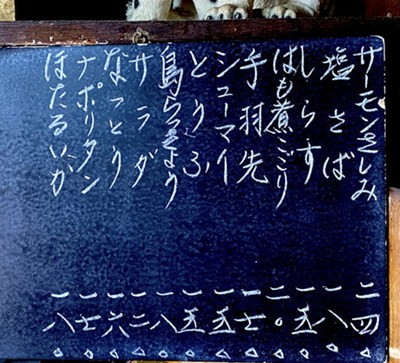 サーモンさしみ 二四〇
塩さば 一八〇
しらす 一五〇
はも煮こごり 二〇〇
手羽先 一七〇
シューマイ 一五〇
とうふ 一五〇
島らっきょう 一八〇
サラダ 一二〇
なっとう 一六〇
ナポリタン 一七〇
ほたるいか 一八〇